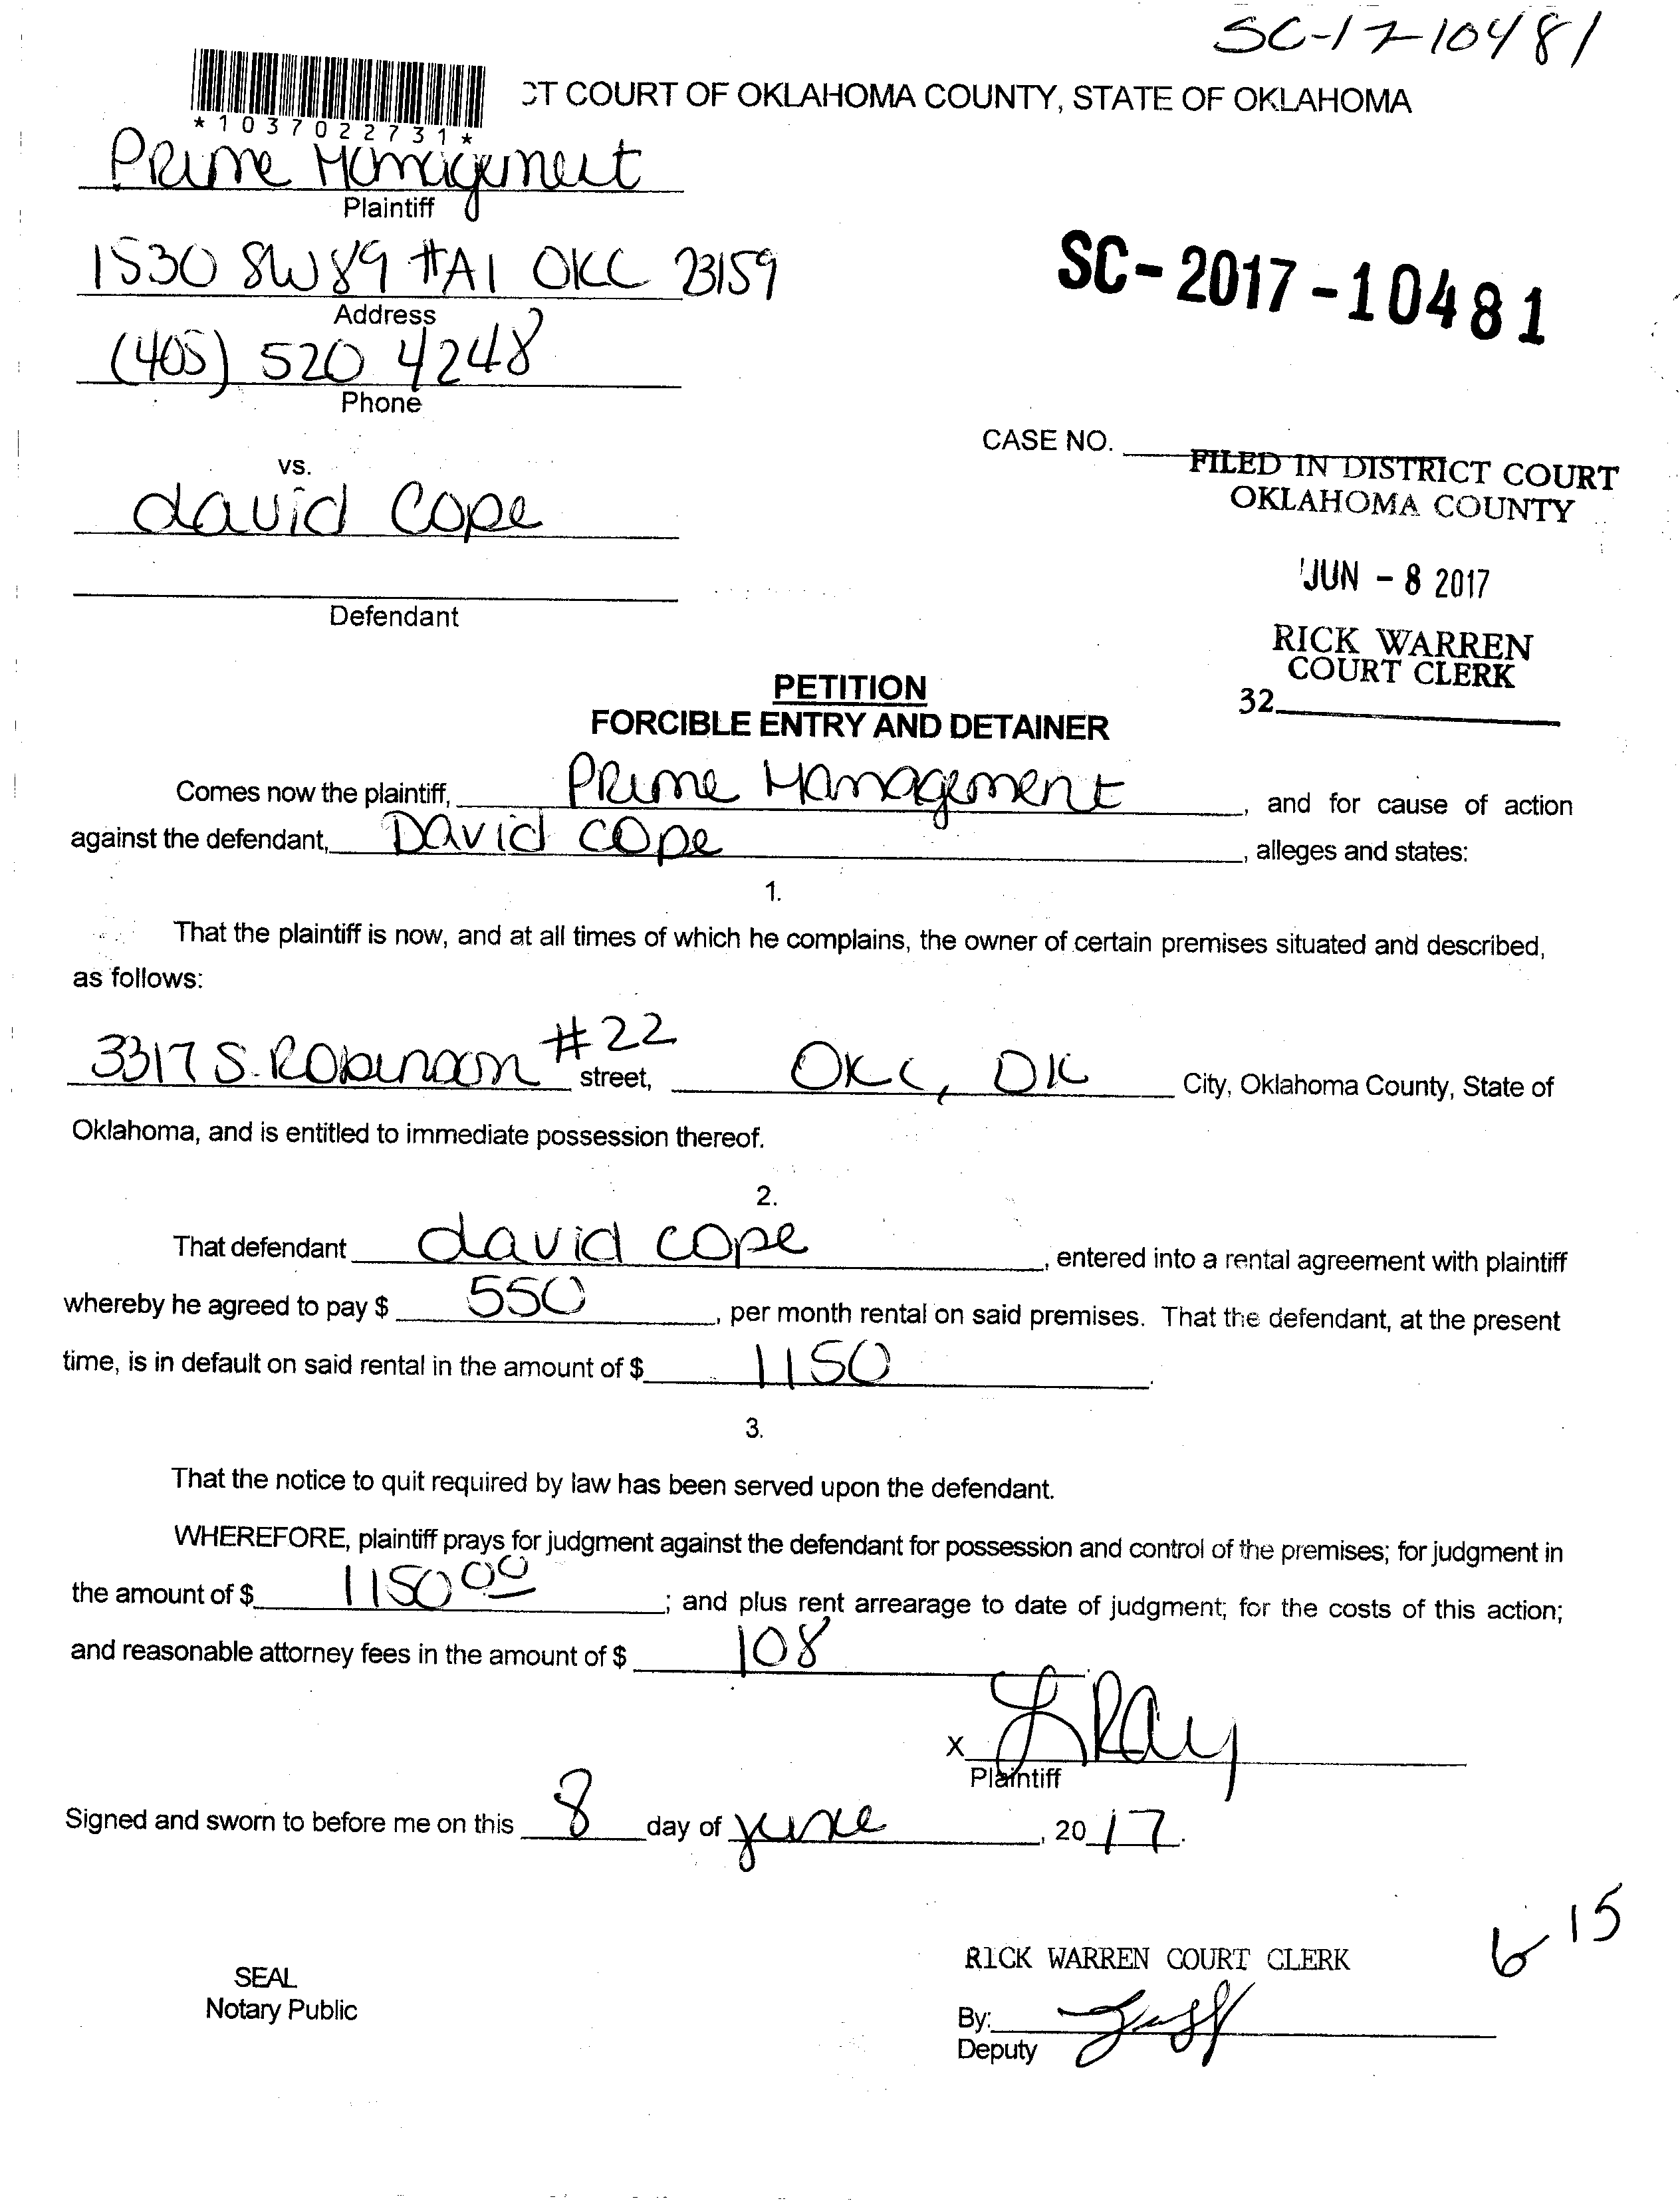 SC-17-10481
*1037022731*
CT COURT OF OKLAHOMA COUNTY, STATE OF OKLAHOMA
Prime Management
Plaintiff
1530 SW 89 #A1 OKC 73159
Address
(405) 520 4248
Phone
SC-2017-10481
CASE NO.
FILED IN DISTRICT COURT
OKLAHOMA COUNTY
vs.
david cope
JUN - 8 2017
Defendant
RICK WARREN
COURT CLERK
32
PETITION
FORCIBLE ENTRY AND DETAINER
Comes now the plaintiff, Prime Management, and for cause of action
against the defendant, David Cope, alleges and states:
1.
That the plaintiff is now, and at all times of which he complains, the owner of certain premises situated and described,
as follows:
3317 S. Robinson #22 street, OKC, OK City, Oklahoma County, State of
Oklahoma, and is entitled to immediate possession thereof.
2.
That defendant david cope, entered into a rental agreement with plaintiff
whereby he agreed to pay $ 550, per month rental on said premises. That the defendant, at the present
time, is in default on said rental in the amount of $ 1150.
3.
That the notice to quit required by law has been served upon the defendant.
WHEREFORE, plaintiff prays for judgment against the defendant for possession and control of the premises; for judgment in
the amount of $ 1150 00; and plus rent arrearage to date of judgment; for the costs of this action;
and reasonable attorney fees in the amount of $ 108
X LRay
Plaintiff
Signed and sworn to before me on this 8 day of june, 20 17.
6 15
RICK WARREN COURT CLERK
SEAL
Notary Public
By:
Deputy